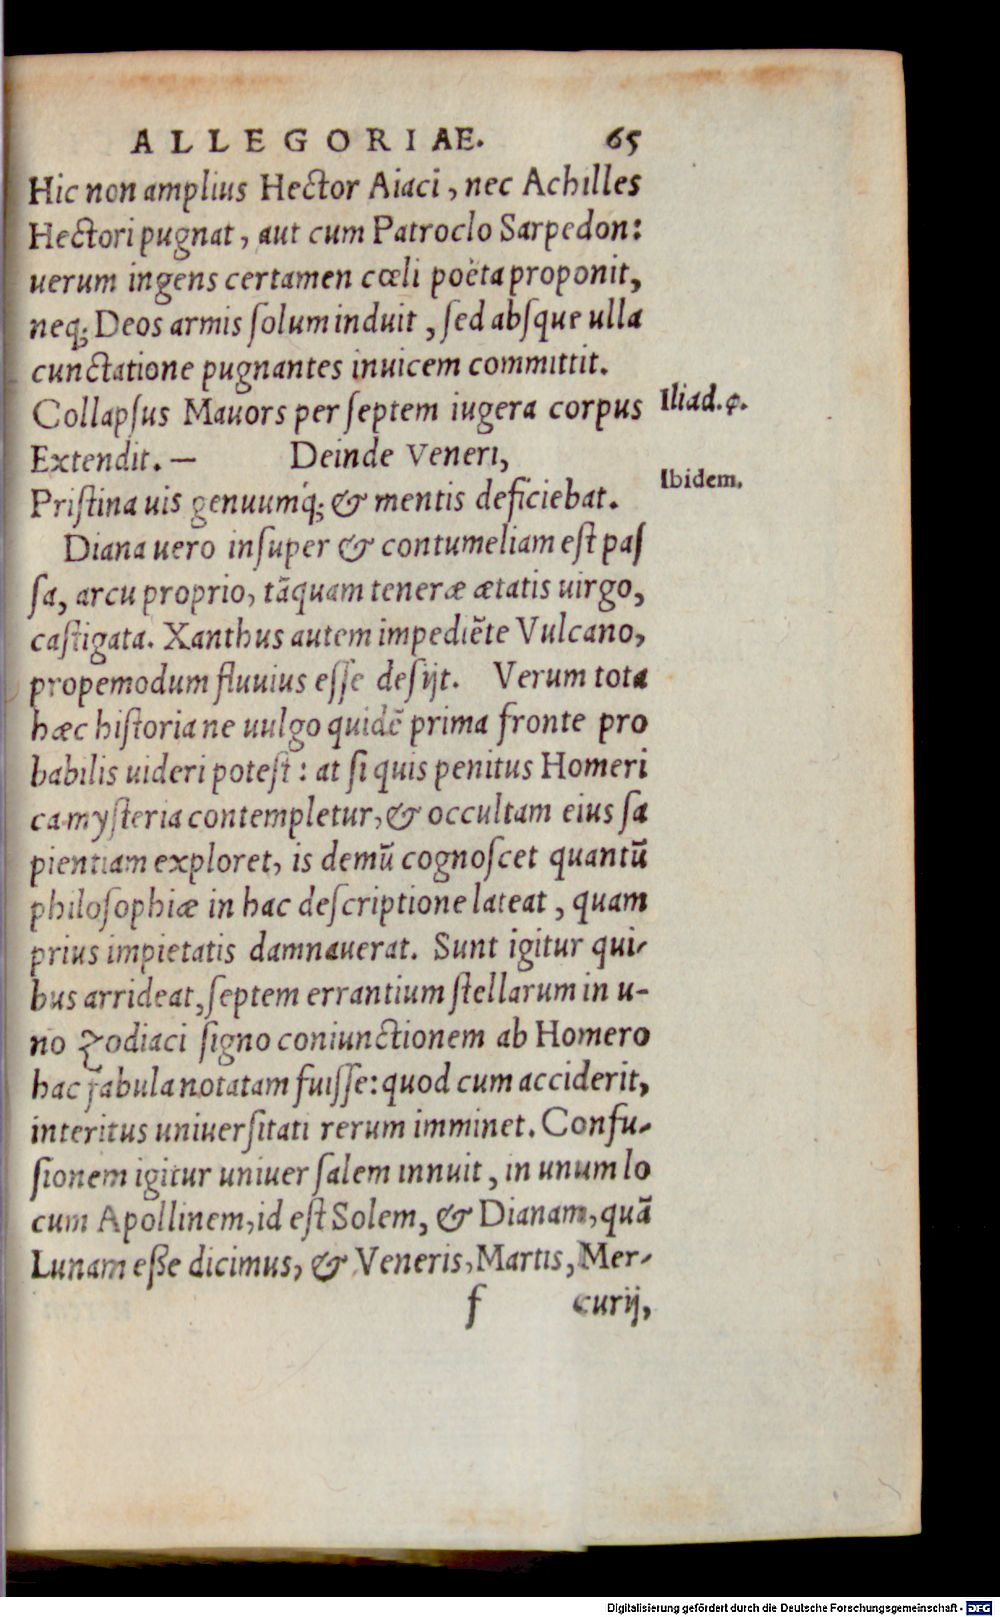 ALLEGORIAE. 65
Hic non amplius Hector Aiaci, nec Achilles
Hectori pugnat, aut cum Patroclo Sarpedon:
uerum ingens certamen cœli poëta proponit,
neq; Deos armis ſolum induit, ſed abſque ulla
cunctatione pugnantes inuicem committit.
Collapſus Mauors per ſeptem iugera corpus
Iliad.φ.
Extendit.— Deinde Veneri,
Ibidem.
Priſtina uis genuumq́; & mentis deficiebat.
Diana uero inſuper & contumeliam eſt paſ
ſa, arcu proprio, tãquam teneræ ætatis uirgo,
caſtigata. Xanthus autem impediẽte Vulcano,
propemodum fluuius eſſe deſijt. Verum tota
hæc hiſtoria ne uulgo quidẽ prima fronte pro
babilis uideri poteſt: at ſi quis penitus Homeri
ca myſteria contempletur, & occultam eius ſa
pientiam exploret, is demũ cognoſcet quantũ
philoſophiæ in hac deſcriptione lateat, quam
prius impietatis damnauerat. Sunt igitur qui-
bus arrideat, ſeptem errantium ſtellarum in u-
no zodiaci ſigno coniunctionem ab Homero
hac fabula notatam fuiſſe: quod cum acciderit,
interitus uniuerſitati rerum imminet. Confu-
ſionem igitur uniuerſalem innuit, in unum lo
cum Apollinem, id eſt Solem, & Dianam, quã
Lunam eße dicimus, & Veneris, Martis, Mer-
f curij,
Digitalisierung gefördert durch die Deutsche Forschungsgemeinschaft - DFG